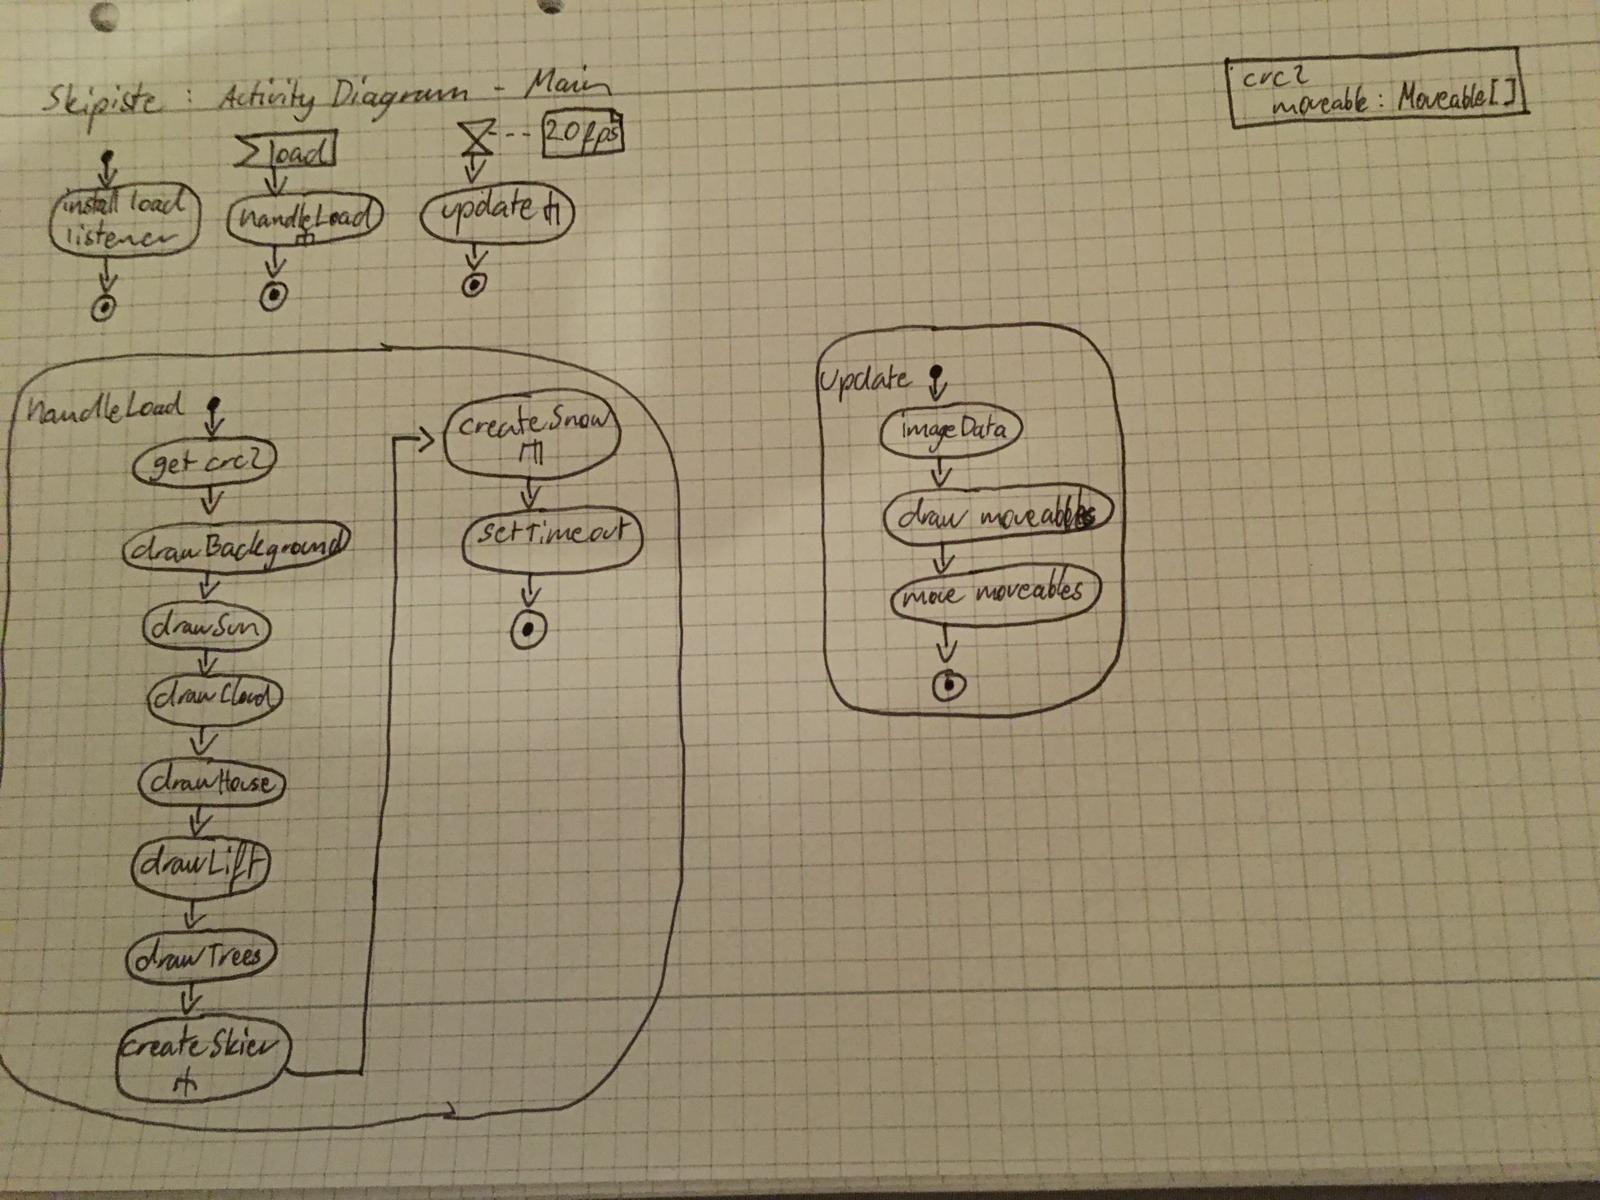 Skipiste : Activity Diagram - Main
crc2
moveable : Moveable[]
load
20fps
install load
listener
handleLoad
update
handleLoad
get crc2
drawBackground
drawSun
drawCloud
drawHouse
drawLift
drawTrees
createSkier
createSnow
setTimeout
Update
imageData
draw moveables
move moveables